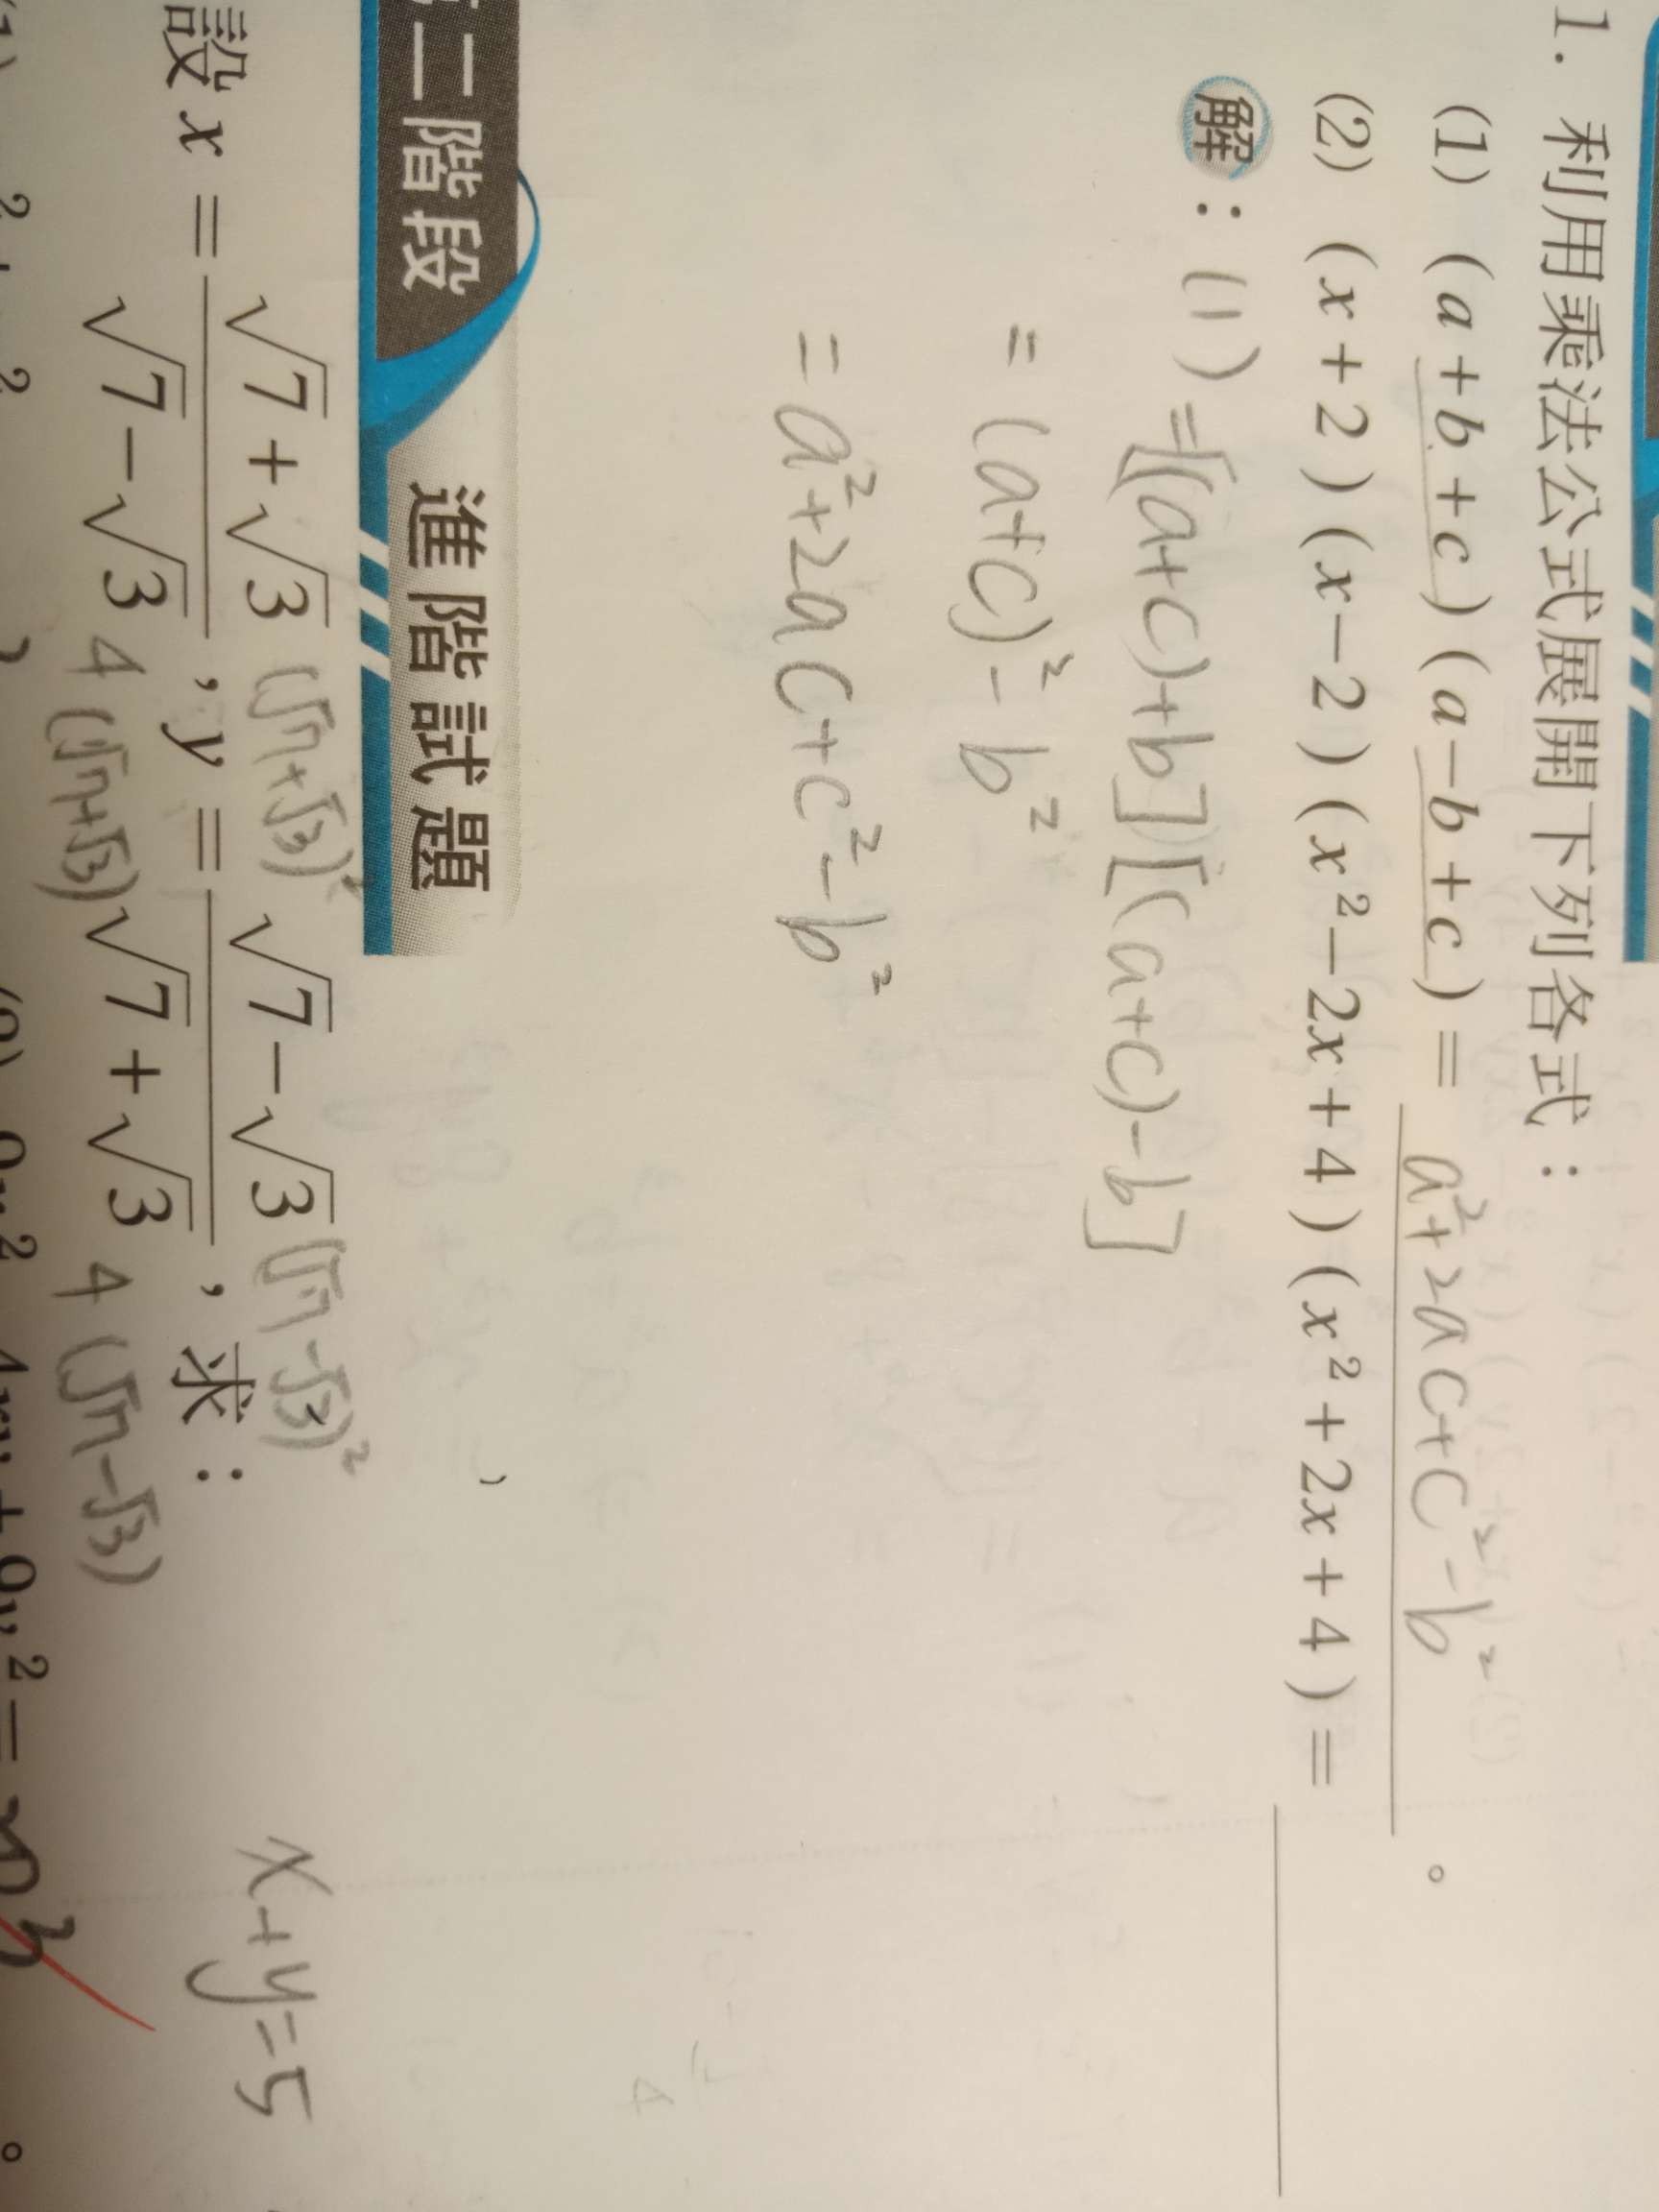 1. 利用乘法公式展開下列各式：
(1) (a+b+c)(a−b+c) = a²+2ac+c²−b² 。
(2) (x+2)(x−2)(x²−2x+4)(x²+2x+4) =
解：(1) =[(a+c)+b][(a+c)-b]
= (a+c)²-b²
= a²+2ac+c²-b²
二階段 進階試題
設 x = (√7+√3)/(√7−√3) , y = (√7−√3)/(√7+√3) , 求：
(√7+√3)²
4 (√7+√3)
(√7-√3)²
4 (√7-√3)
x+y=5